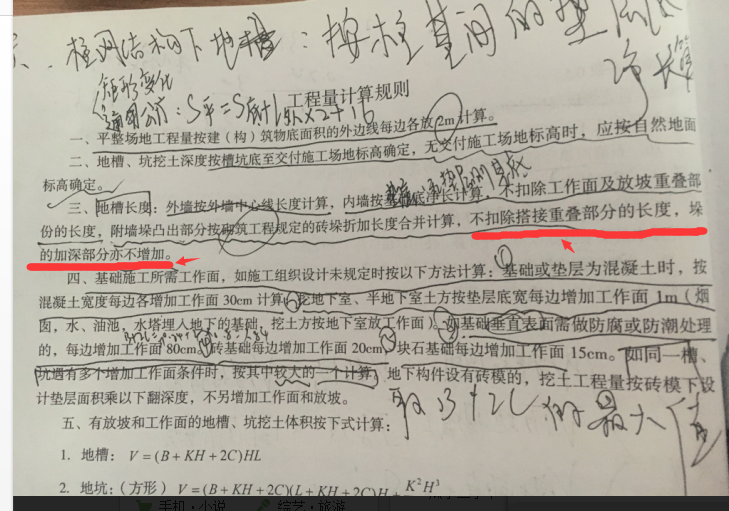 柱网结构下地槽：按柱基间的垫
净长算
矩形变化
通用公示：S平=S底+L外x2+16
工程量计算规则
一、平整场地工程量按建（构）筑物底面积的外边线每边各放2m计算。
二、地槽、坑挖土深度按槽坑底至交付施工场地标高确定，无交付施工场地标高时，应按自然地面
标高确定。
三、地槽长度：外墙按外墙中心线长度计算，内墙按底净长计算，不扣除工作面及放坡重叠部
份的长度，附墙垛凸出部分按砌筑工程规定的砖垛折加长度合并计算，不扣除搭接重叠部分的长度，垛
的加深部分亦不增加。
四、基础施工所需工作面，如施工组织设计未规定时按以下方法计算：①基础或垫层为混凝土时，按
混凝土宽度每边各增加工作面30cm计算 挖地下室、半地下室土方按垫层底宽每边增加工作面1m（烟
囱，水、油池，水塔埋人地下的基础，挖土方按地下室放工作面） 基础垂直表面需做防腐或防潮处理
的，每边增加工作面80cm 砖基础每边增加工作面20cm 块石基础每边增加工作面15cm。如同一槽、
坑遇有多个增加工作面条件时，按其中较大的一个计算。地下构件设有砖模的，挖土工程量按砖模下设
计垫层面积乘以下翻深度，不另增加工作面和放坡。
的最大值
五、有放坡和工作面的地槽、坑挖土体积按下式计算：
1. 地槽：V=(B+KH+2C)HL
2. 地坑：（方形）V=(B+KH+2C)(L+KH+2C)H+K²H³
手机·小说 综艺·旅游